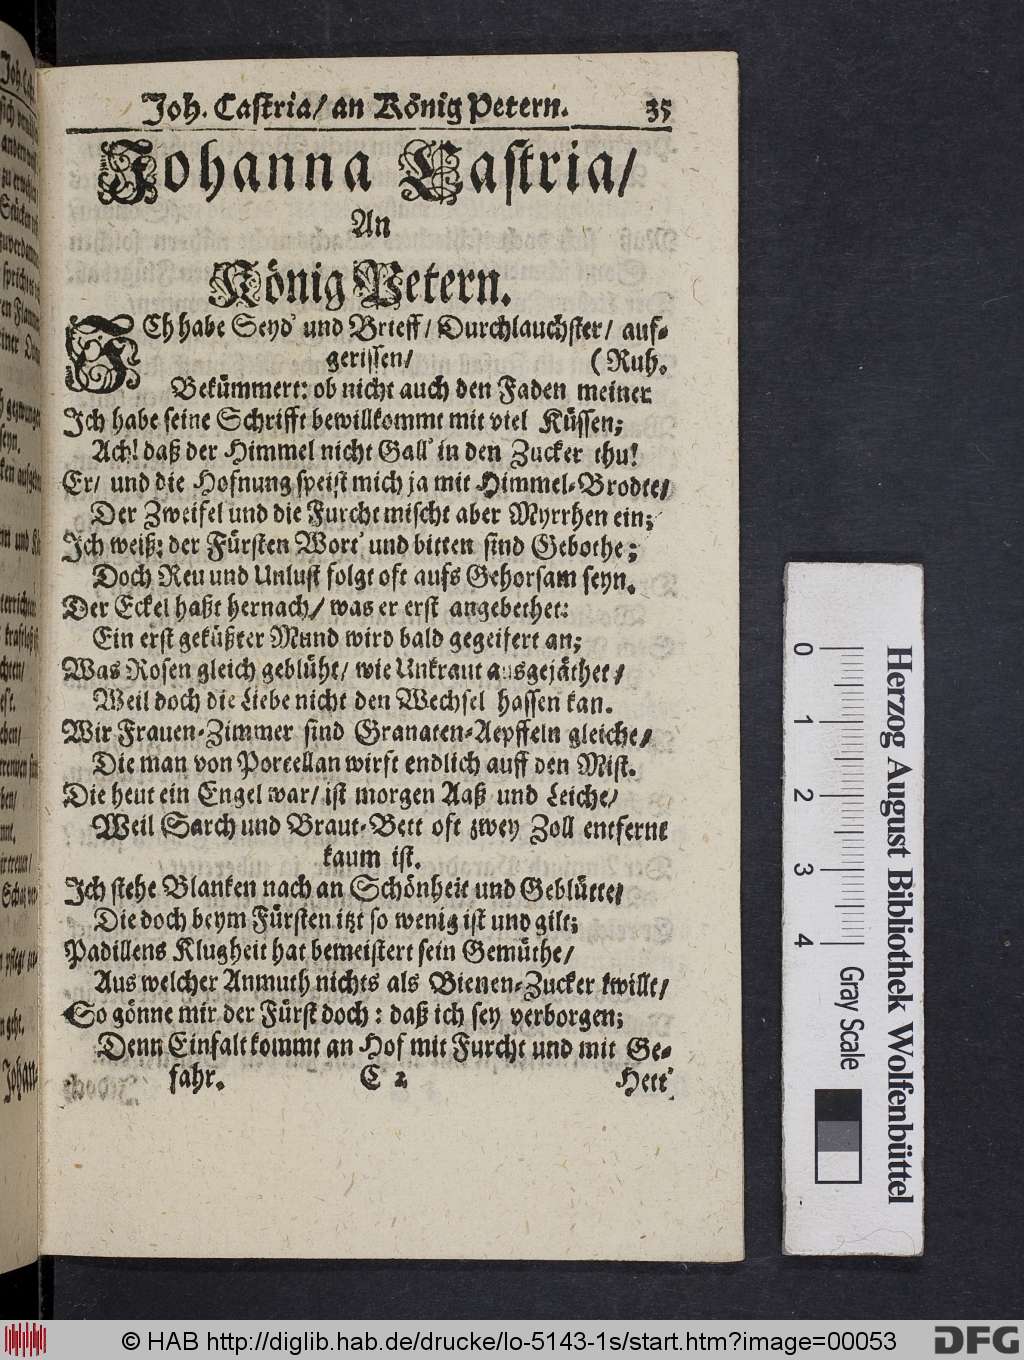 Joh. Castria/ an König Petern. 35
Johanna Castria/
An
König Petern.
ICh habe Seyd' und Brieff/ Durchlauchster/ auf-
gerissen/ (Ruh.
Bekümmert: ob nicht auch den Faden meiner
Ich habe seine Schrifft bewillkommt mit viel Küssen;
Ach! daß der Himmel nicht Gall' in den Zucker thu!
Er/ und die Hofnung speist mich ja mit Himmel-Brodte/
Der Zweifel und die Furcht mischt aber Myrrhen ein;
Ich weiß: der Fürsten Wort' und bitten sind Gebothe;
Doch Reu und Unlust folgt oft aufs Gehorsam seyn.
Der Eckel haßt hernach/ was er erst angebethet:
Ein erst geküßter Mund wird bald gegeifert an;
Was Rosen gleich geblüht/ wie Unkraut ausgejäthet/
Weil doch die Liebe nicht den Wechsel hassen kan.
Wir Frauen-Zimmer sind Granaten-Aepffeln gleiche/
Die man von Porcellan wirft endlich auff den Mist.
Die heut ein Engel war/ ist morgen Aaß und Leiche/
Weil Sarch und Braut-Bett oft zwey Zoll entfernt
kaum ist.
Ich stehe Blanken nach an Schönheit und Geblütte/
Die doch beym Fürsten itzt so wenig ist und gilt;
Padillens Klugheit hat bemeistert sein Gemüthe/
Aus welcher Anmuth nichts als Bienen-Zucker kwillt/
So gönne mir der Fürst doch: daß ich sey verborgen;
Denn Einfalt kommt an Hof mit Furcht und mit Ge-
fahr. C 2 Hett'
0 1 2 3 4 Gray Scale
Herzog August Bibliothek Wolfenbüttel
© HAB http://diglib.hab.de/drucke/lo-5143-1s/start.htm?image=00053
DFG